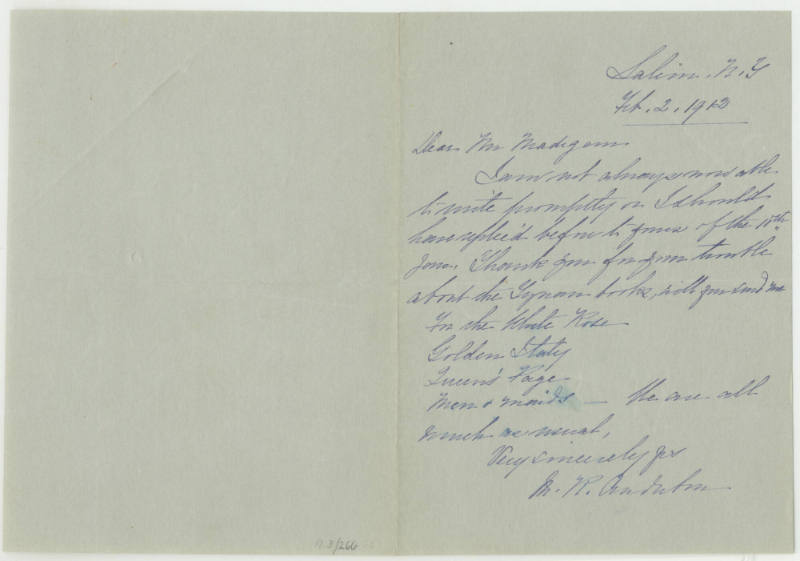 Salem. N.Y
Feb. 2. 1912
Dear Mr Madigan
I am not always now able
to write promptly or I should
have replied before to yours of the 10th
Jan. Thank you for your trouble
about the Tynan books, will you send me
For the White Rose
Golden Italy
Queen's Page
Men & maids — We are all
much as usual,
Very sincerely yrs
M. R. Audubon
11.3/266